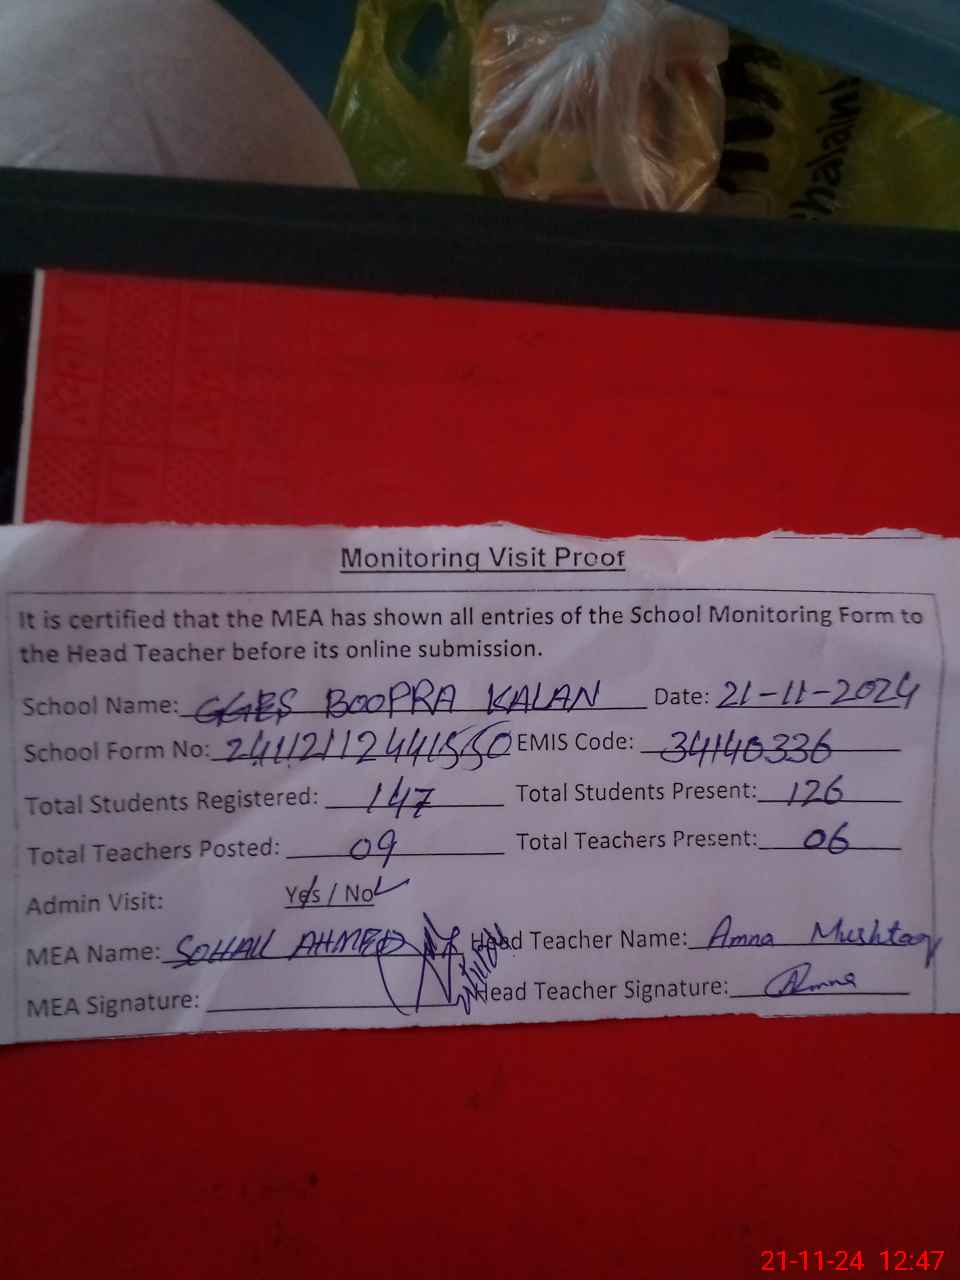 Shalain
Monitoring Visit Proof
It is certified that the MEA has shown all entries of the School Monitoring Form to
the Head Teacher before its online submission.
School Name: GGES BOOPRA KALAN Date: 21-11-2024
School Form No: 24112112441550 EMIS Code: 34140336
Total Students Registered: 147 Total Students Present: 126
Total Teachers Posted: 09 Total Teachers Present: 06
Admin Visit: Yes / No
MEA Name: SOHAIL AHMED Head Teacher Name: Amna Mushtaq
MEA Signature: Head Teacher Signature: Amna
21-11-24 12:47